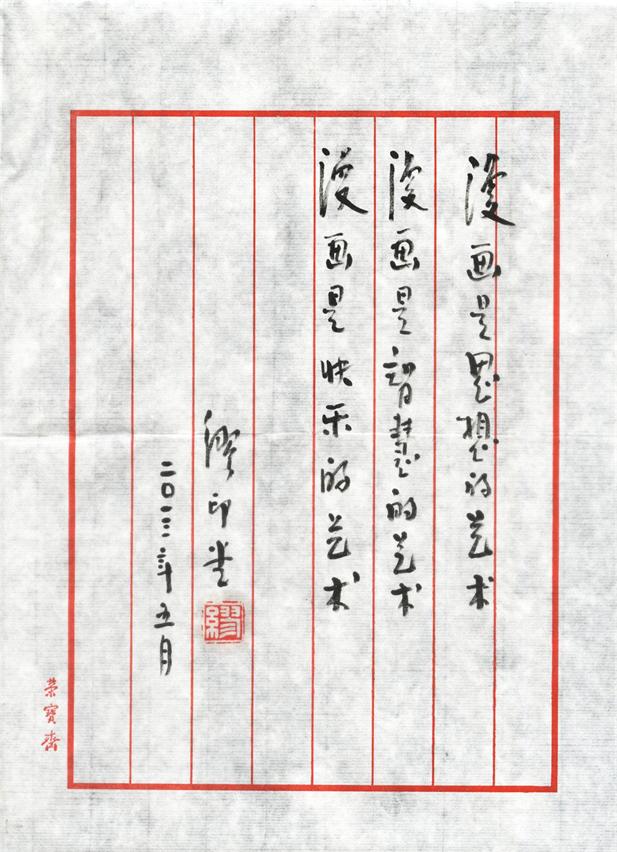 漫画是思想的艺术
漫画是智慧的艺术
漫画是快乐的艺术
缪印堂
繆
二〇一三年五月
荣寳斋